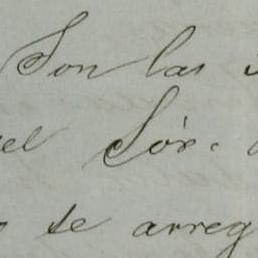 Son las
el Sór.
se arreg